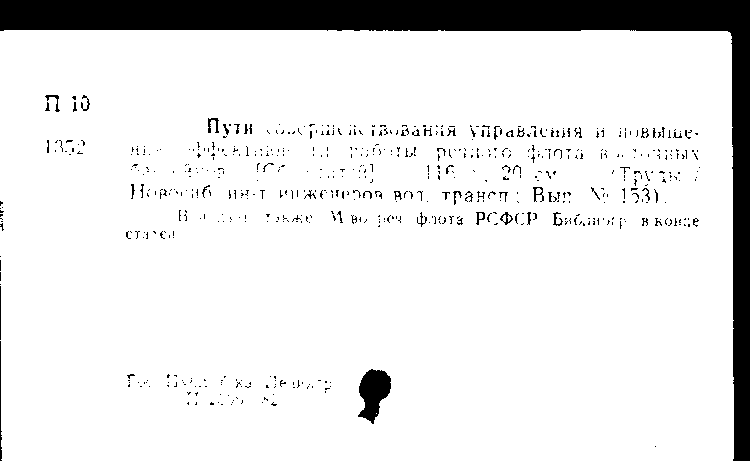 П 10
Пути совершенствования управления и повыше-
1352
ния эффективности работы речного флота восточных
бассейнов [Сб. статей] 116 с., 20 см (Труды /
Новосиб. ин-т инженеров вод. трансп.; Вып. № 153).
В надзаг. также: М-во реч. флота РСФСР. Библиогр. в конце
статей
Гос. Публ. б-ка Ленингр.